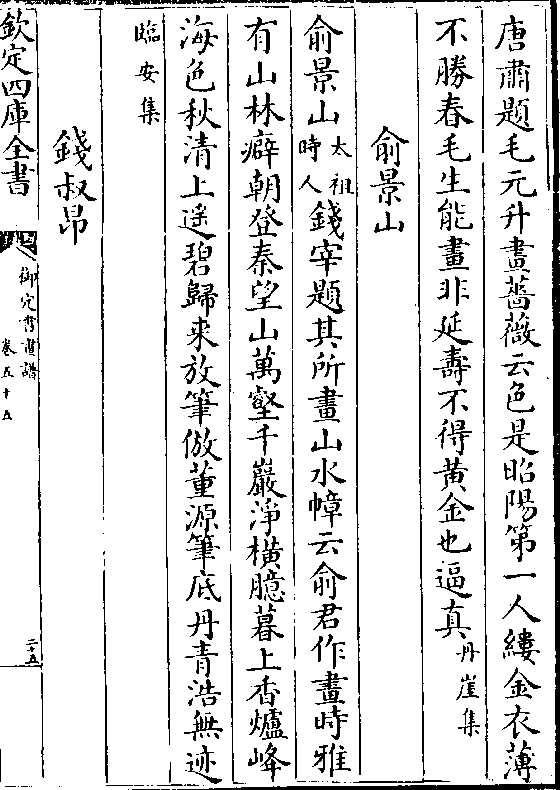 唐肅題毛元升畫薔薇云色是昭陽第一人縷金衣薄
不勝春毛生能畫非延壽不得黃金也逼真丹崖集
俞景山
俞景山太祖時人錢宰題其所畫山水幛云俞君作畫時雅
有山林癖朝登秦望山萬壑千巖淨橫臆暮上香爐峰
海色秋清上遥碧歸来放筆倣董源筆底丹青浩無迹
臨安集
錢叔昂
欽定四庫全書
御定書畫譜
卷五十五
二十五